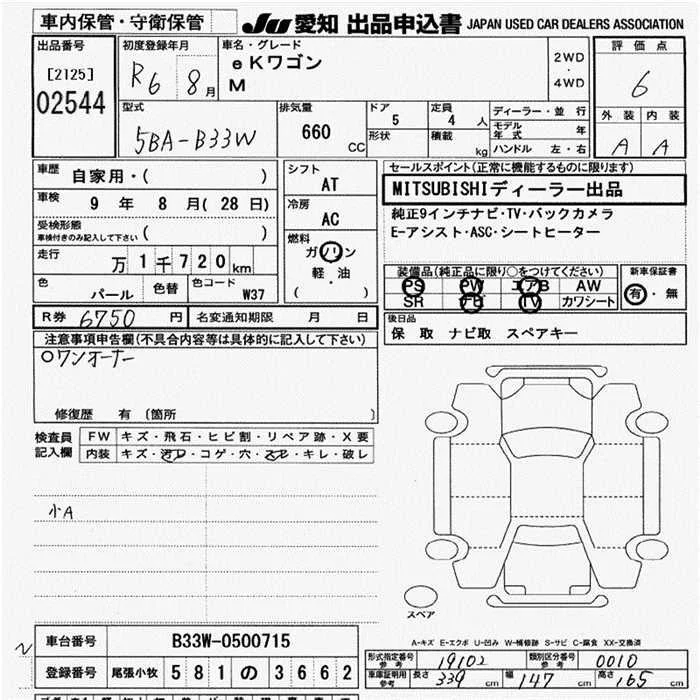 車内保管・守衛保管 JU 愛知 出品申込書 JAPAN USED CAR DEALERS ASSOCIATION
出品番号
[2125]
02544
初度登録年月
R6 8月
車名・グレード
eKワゴン
M
2WD
・
4WD
評価点
6
外装 内装
A A
型式
5BA-B33W
排気量
660 CC
ドア
5
形状
定員
4 人
積載
kg
ディーラー・並行
モデル年式 年
ハンドル 左・右
車歴 自家用・( )
車検 9 年 8 月( 28 日)
受検形態
車検付きのみ記入して下さい ( )
走行 万 1千720km
色 パール
色替
色コード W37
シフト
AT
冷房
AC
燃料
ガソリン
軽・油
( )
セールスポイント(正常に機能するものに限ります)
MITSUBISHIディーラー出品
純正9インチナビ・TV・バックカメラ
E-アシスト・ASC・シートヒーター
装備品(純正品に限り○をつけてください)
PS PW エアB AW
SR ナビ TV カワシート
新車保証書
有・無
R券 6750 円 名変通知期限 月 日
後日品
保 取 ナビ取 スペアキー
注意事項申告欄(不具合内容等は具体的に記入して下さい)
○ワンオーナー
修復歴 有 〔箇所 〕
検査員
記入欄
FW キズ・飛石・ヒビ割・リペア跡・X要
内装 キズ・汚レ・コゲ・穴・スレ・キレ・破レ
小A
スペア
車台番号 B33W-0500715
登録番号 尾張小牧 581の3662
A-キズ E-エクボ U-凹み W-補修跡 S-サビ C-腐食 XX-交換済
形式指定番号
参考 19102
類別区分番号
参考 0010
車庫証明用
参考 長さ 339 cm 幅 147 cm 高さ 165 cm